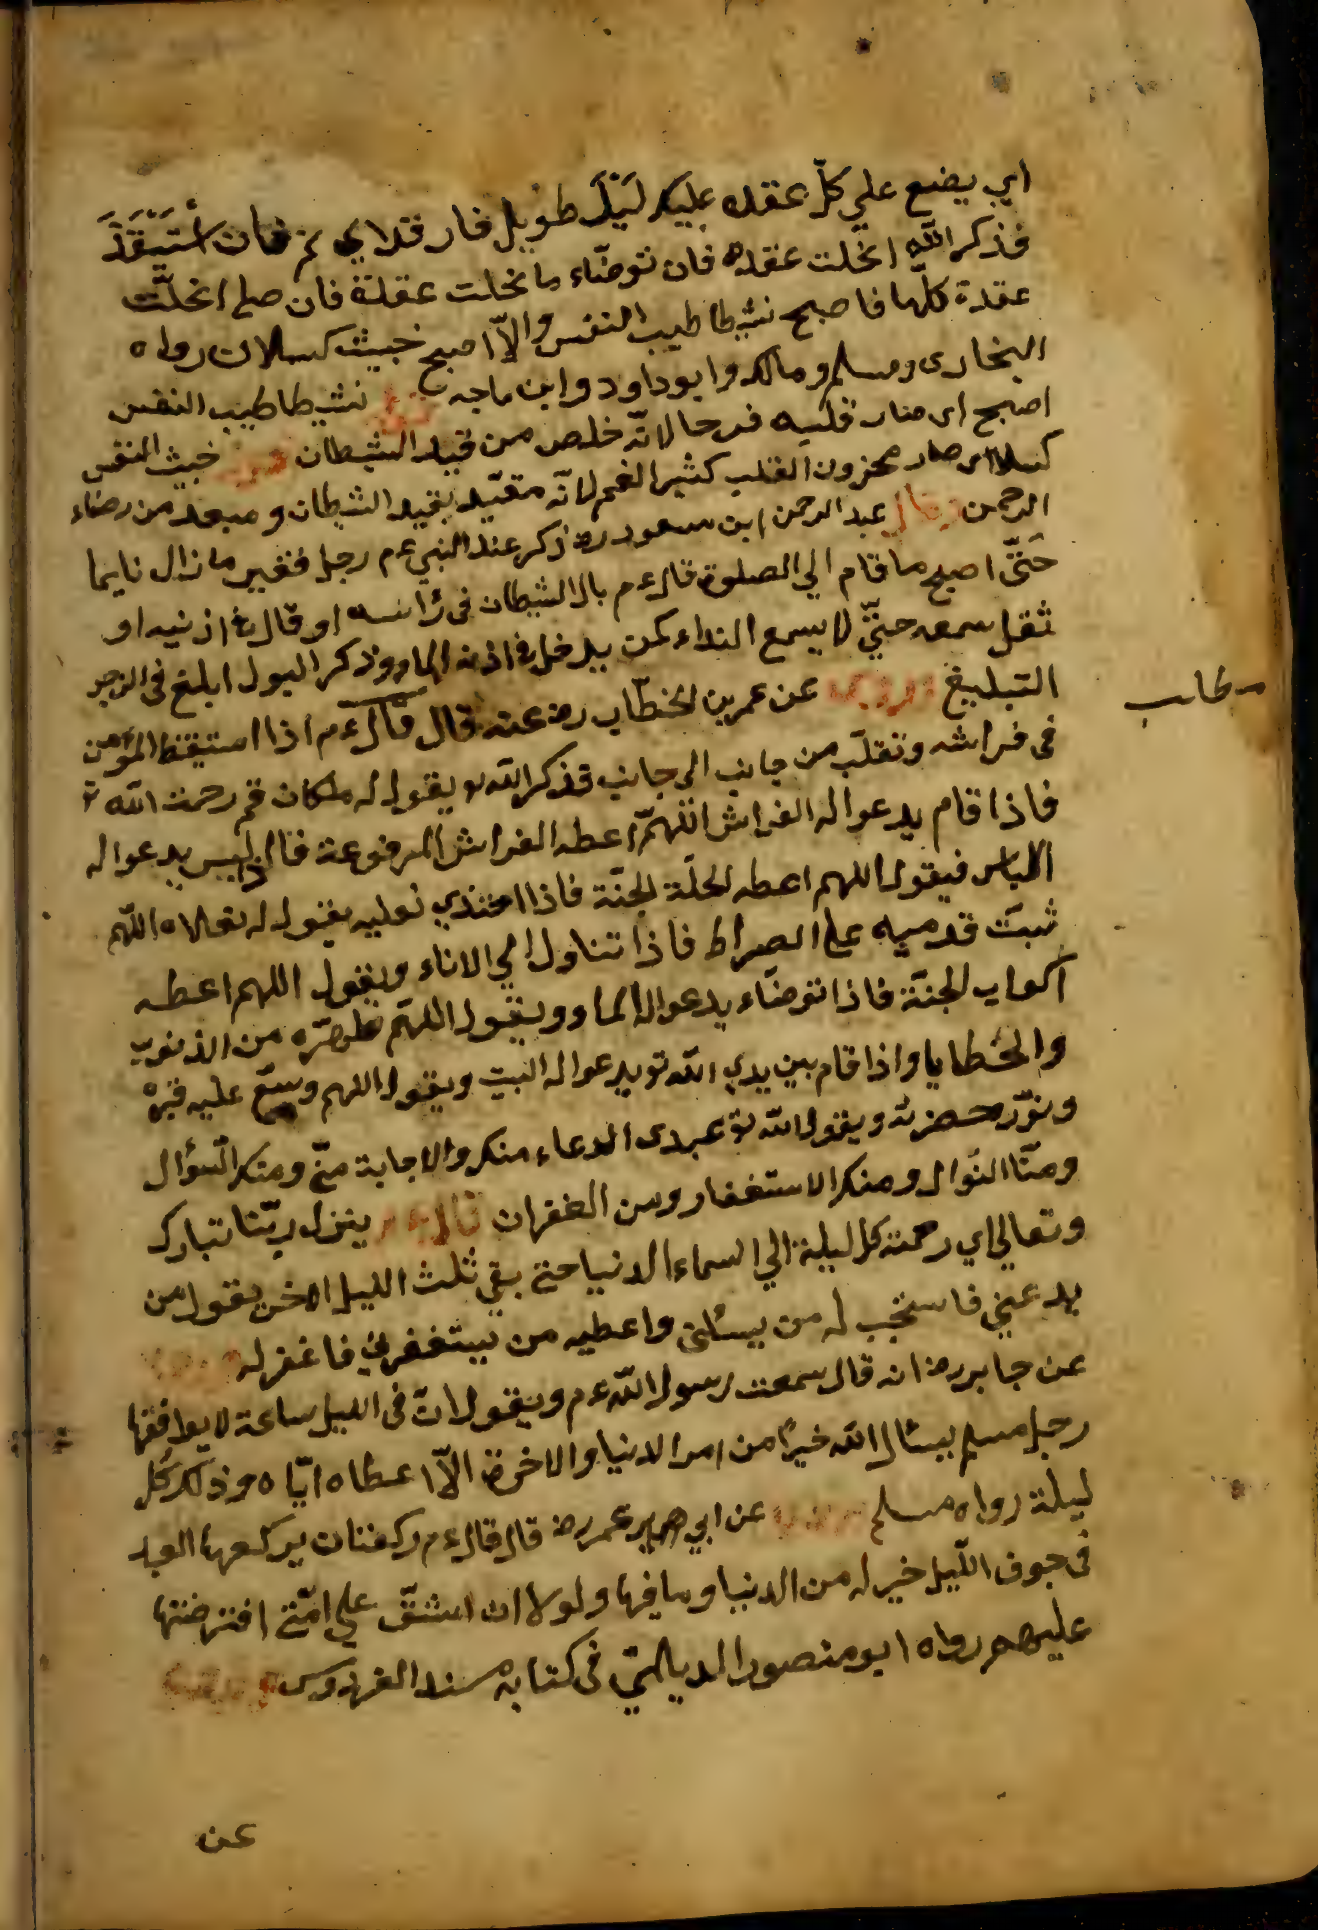 اي يضع علي كلّ عقده عليك لَيْلٌ طويل فارقد اي نم فان اسْتَيْقَذَ
فذكر اللّه انحلت عقده فان توضّاء مانحلت عقلة فان صلي انحلّت
عقدة كلّها فاصبح نشيطا طيب النفس والاّ اصبح خبيث كسلان رواه
البخارى ومسلم ومالك وابوداود وابن ماجه نشيطا طيب النفس
اصبح اى صار قلبه فرحا لانّه خلص من قيد الشيطان خبيث النفس
كسلا اى صار محزون القلب كثير الغم لانّه مقيّد بقيد الشيطان ومبعد من رضاء
الرحمن وقال عبد الرحمن ابن سعود رض ذكر عند النبي عم رجل فقير مازال نايما
حَتّى اصبح ماقام الي الصلوة قال عم بال الشيطان فى رٔاسه او قال فى اذنيه او
ثقل سمعه حتّي لا يسمع النداء كمن يدخل فى اذنه الماء وذكر البول ابلغ فى الزجر
التبليغ عن عمر بن الخطّاب رض عنه قال قال عم اذا استيقظ المؤمن
مطلب
فى فراشه وتقلّب من جانب الى جانب فذكر اللّه يقول له ملكان قم رحمت اللّه تع
فاذا قام يدعوا له الفراش اللّهمّ اعطه الفراش المرفوعة فاذا لبس يدعوا له
اللباس فيقول اللهم اعطه الحلّة الجنّة فاذا احتذي نعليه يقول له نعلاه اللّهم
ثبتّ قدميه على الصراط فاذا تناول الي الاناء ويقول اللهم اعطه
اكواب الجنّة فاذا توضّاء يدعوا له الماء ويقول اللهّم طهّره من الذنوب
والخطايا واذا قام بين يدي اللّه تع يدعوا له البيت ويقول اللهم وسّع عليه قبره
ونوّر حضرته ويقول اللّه تع عبدى الدعاء منك والاجابة منّي ومنك السّؤال
ومنّا النوال ومنك الاستغفار ومن الغفران قال عم ينزل ربّنا تبارك
وتعالي اي رحمته كل ليلة الي السماء الدنيا حتي بقي ثلث الليل الاخر يقول من
يدعيني فاستجب له من يسئلنى واعطيه من يستغفرني فاغفر له
عن جابر رض انه قال سمعت رسول اللّه عم ويقول انّ فى الليل ساعة لا يوافقها
رجل مسلم يسئال اللّه خيرًا من امر الدنيا والاخرة الاّ اعطاه ايّاه وذلك كُل
ليلة رواه مسلم عن ابي هرير عمر رض قال قال عم ركعتان يركعها العبد
فى جوف اللّيل خير له من الدنيا وما فيها ولولا ان اشقّ علي امّتي افترضتها
عليهم رواه ابو منصور الديالمي فى كتابه مسند الفردوس
عن